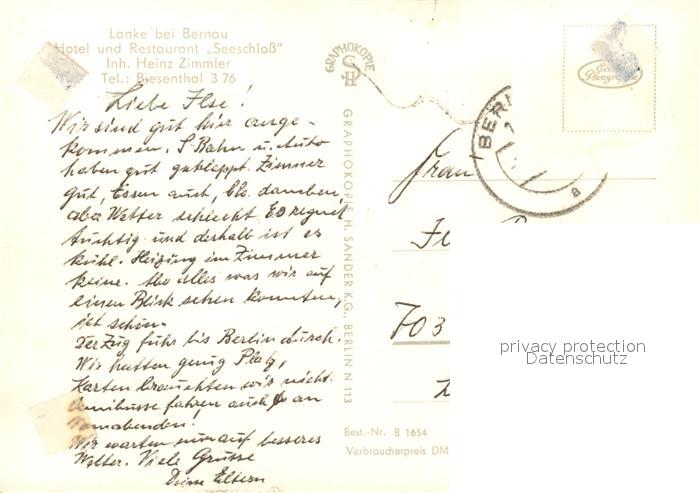 Lanke bei Bernau
Hotel und Restaurant „Seeschloß"
Inh. Heinz Zimmler
Tel.: Biesenthal 3 76
Liebe Ilse!
Wir sind gut hier ange-
kommen. S-Bahn u. Auto
haben gut geklappt. Zimmer
gut, Essen auch, Clo. daneben,
aber Wetter schlecht. Es regnet
tüchtig und deshalb ist es
kühl. Heizung im Zimmer
keine. Also alles was wir auf
einen Blick sehen konnten,
ist schön.
Der Zug fuhr bis Berlin durch.
Wir hatten genug Platz,
Karten brauchten wir nicht.
Omnibusse fahren auch an
Sonnabenden!
Wir warten nur auf besseres
Wetter. Viele Grüsse
Deine Eltern
GRAPHOKOPIE
GRAPHOKOPIE H. SANDER K.G., BERLIN N 113
BERN
a
Frau
703
Best.-Nr. B 1654
Verbraucherpreis DM
privacy protection
Datenschutz